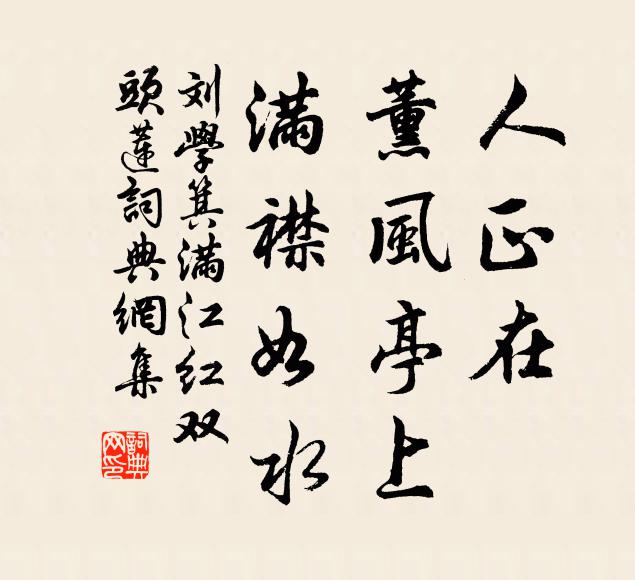 人正在
薰風亭上
满襟如水
刘學箕满江红双
頭蓮詞典網集
詞典
网印